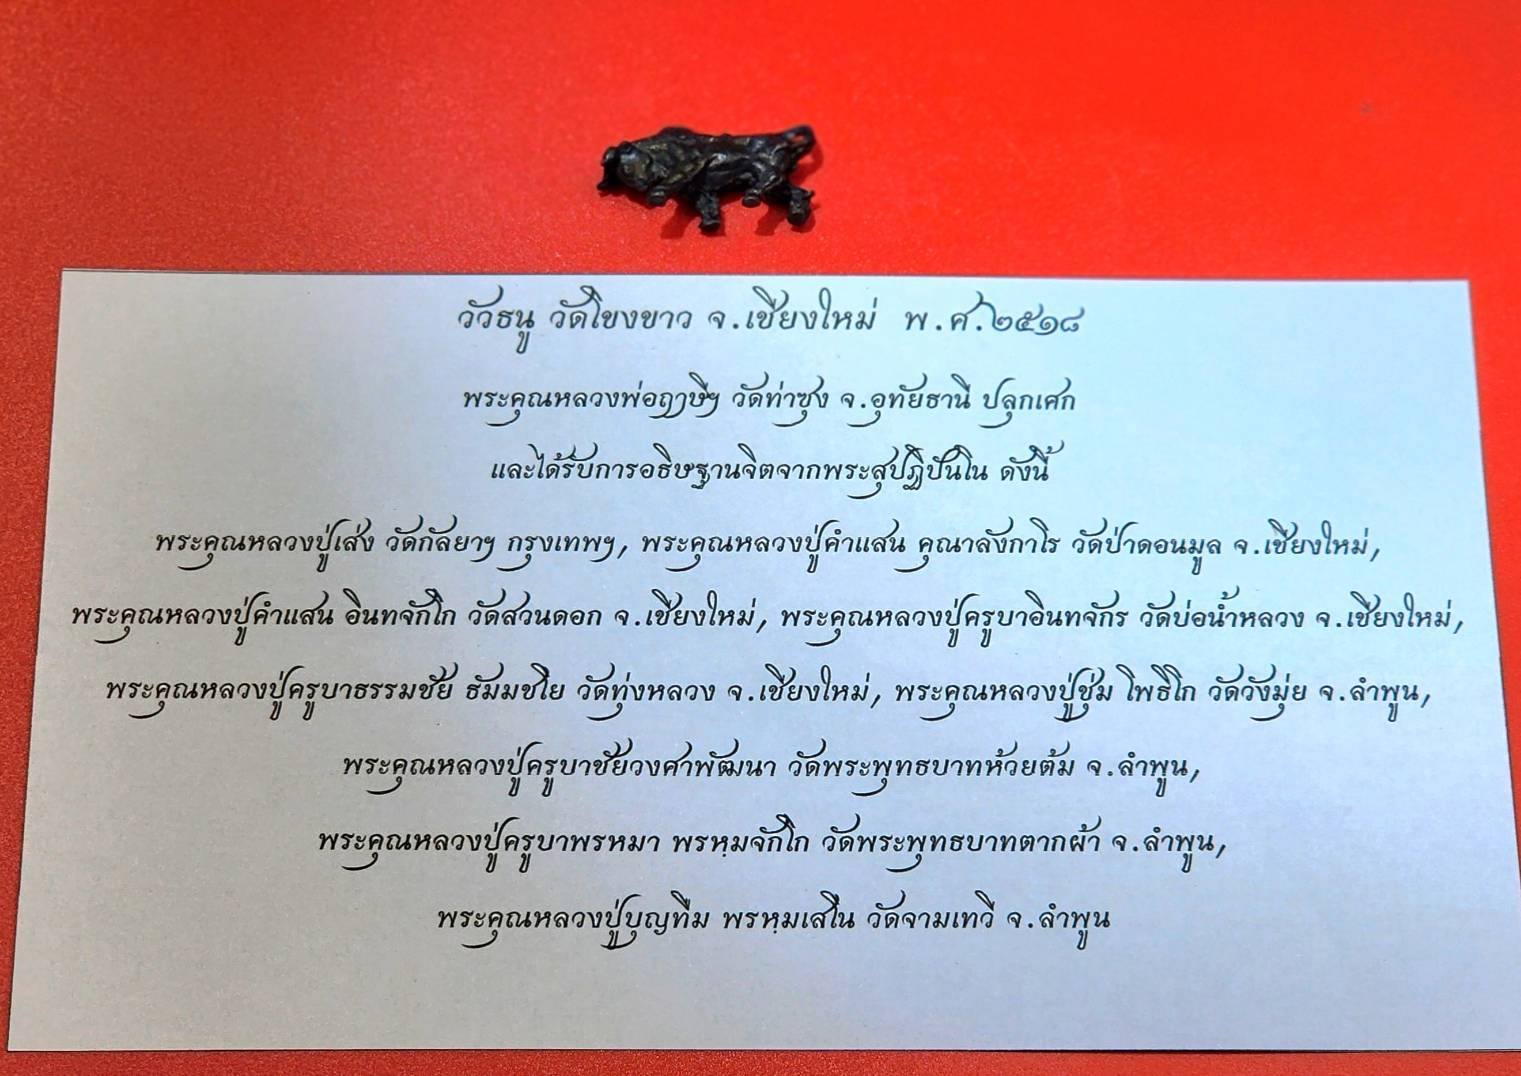 วัวธนู วัดโขงขาว จ.เชียงใหม่ พ.ศ.๒๕๑๘
พระคุณหลวงพ่อฤๅษีฯ วัดท่าซุง จ.อุทัยธานี ปลุกเศก
และได้รับการอธิษฐานจิตจากพระสุปฏิปันโน ดังนี้
พระคุณหลวงปู่เส่ง วัดกัลยาฯ กรุงเทพฯ, พระคุณหลวงปู่คำแสน คุณาลังกาโร วัดป่าดอนมูล จ.เชียงใหม่,
พระคุณหลวงปู่คำแสน อินทจักโก วัดสวนดอก จ.เชียงใหม่, พระคุณหลวงปู่ครูบาอินทจักร วัดบ่อน้ำหลวง จ.เชียงใหม่,
พระคุณหลวงปู่ครูบาธรรมชัย ธัมมชโย วัดทุ่งหลวง จ.เชียงใหม่, พระคุณหลวงปู่ชุ่ม โพธิโก วัดวังมุ่ย จ.ลำพูน,
พระคุณหลวงปู่ครูบาชัยวงศาพัฒนา วัดพระพุทธบาทห้วยต้ม จ.ลำพูน,
พระคุณหลวงปู่ครูบาพรหมา พรหฺมจักโก วัดพระพุทธบาทตากผ้า จ.ลำพูน,
พระคุณหลวงปู่บุญทืม พรหฺมเสโน วัดจามเทวี จ.ลำพูน